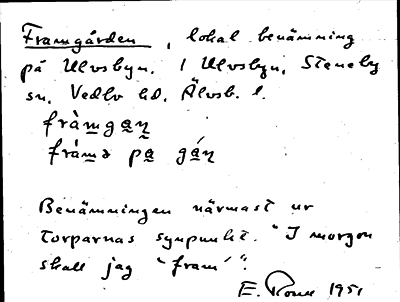 Framgården, lokal benämning
på Ulvsbyn. I Ulvsbyn, Steneby
sn, Vedbo hd, Älvsb. l.
fràmgan̥
frámə pa gán̥
Benämningen närmast ur
torparnas synpunkt. "I morgon
skall jag 'fram'".
E. 1951